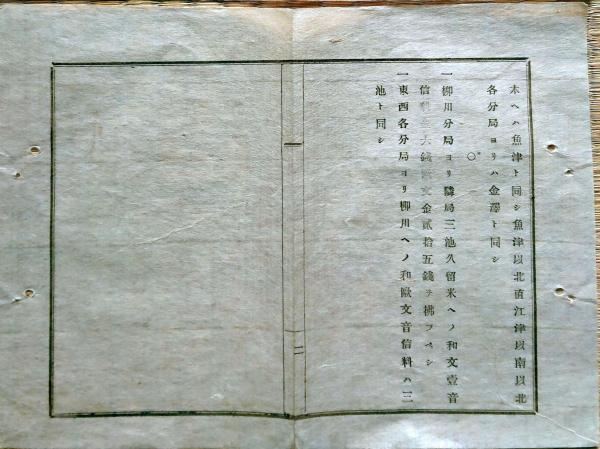 木ヘハ魚津ト同シ魚津以北直江津以南以北
各分局ヨリハ金澤ト同シ
○
一柳川分局ヨリ隣局三池久留米ヘノ和文壹音
信料金六錢歐文金貳拾五錢ヲ拂フヘシ
一東西各分局ヨリ柳川ヘノ和歐文音信料ハ三
池ト同シ
二